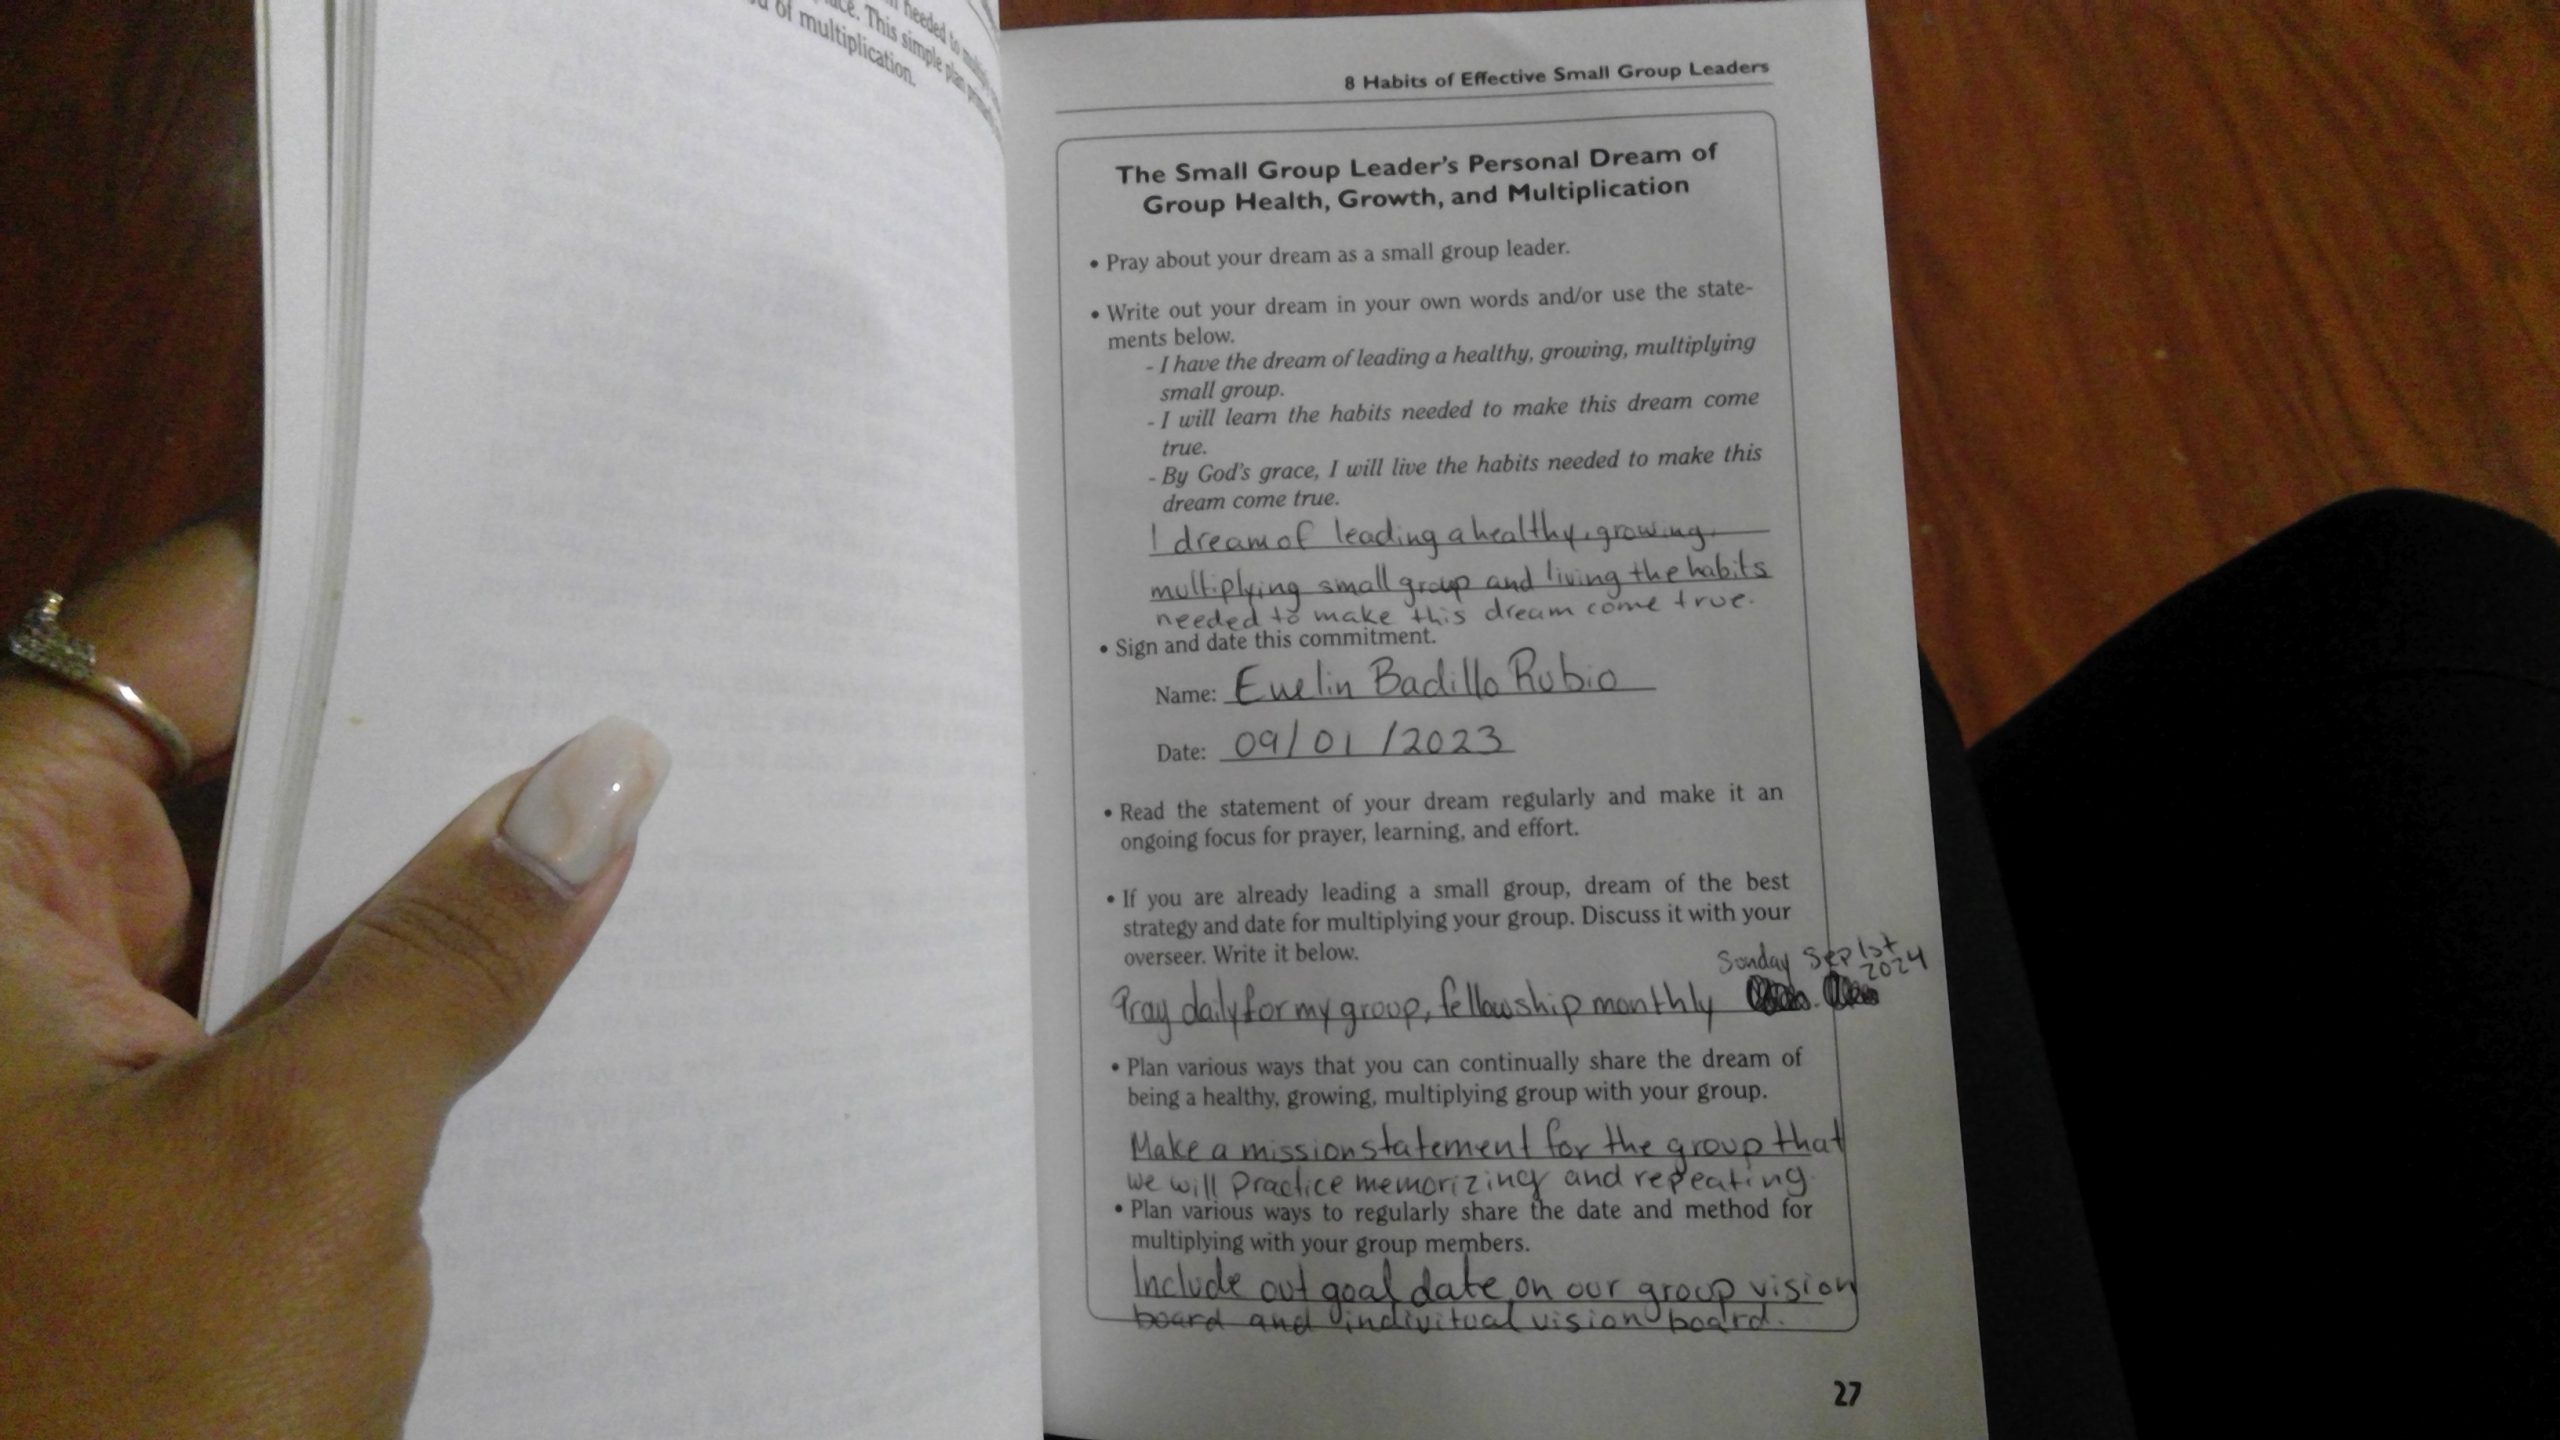 needed to
ace. This simple plan
of multiplication.
8 Habits of Effective Small Group Leaders
The Small Group Leader's Personal Dream of
Group Health, Growth, and Multiplication
• Pray about your dream as a small group leader.
• Write out your dream in your own words and/or use the state-
ments below.
- I have the dream of leading a healthy, growing, multiplying
small group.
- I will learn the habits needed to make this dream come
true.
- By God's grace, I will live the habits needed to make this
dream come true.
I dream of leading a healthy, growing,
multiplying small group and living the habits
needed to make this dream come true.
• Sign and date this commitment.
Name: Evelin Badillo Rubio
Date: 09/01/2023
• Read the statement of your dream regularly and make it an
ongoing focus for prayer, learning, and effort.
• If you are already leading a small group, dream of the best
strategy and date for multiplying your group. Discuss it with your
overseer. Write it below.
Sunday Sep 1st
2024
Pray daily for my group, fellowship monthly
• Plan various ways that you can continually share the dream of
being a healthy, growing, multiplying group with your group.
Make a mission statement for the group that
we will practice memorizing and repeating.
• Plan various ways to regularly share the date and method for
multiplying with your group members.
Include out goal date on our group vision
board and indivitual vision board.
27